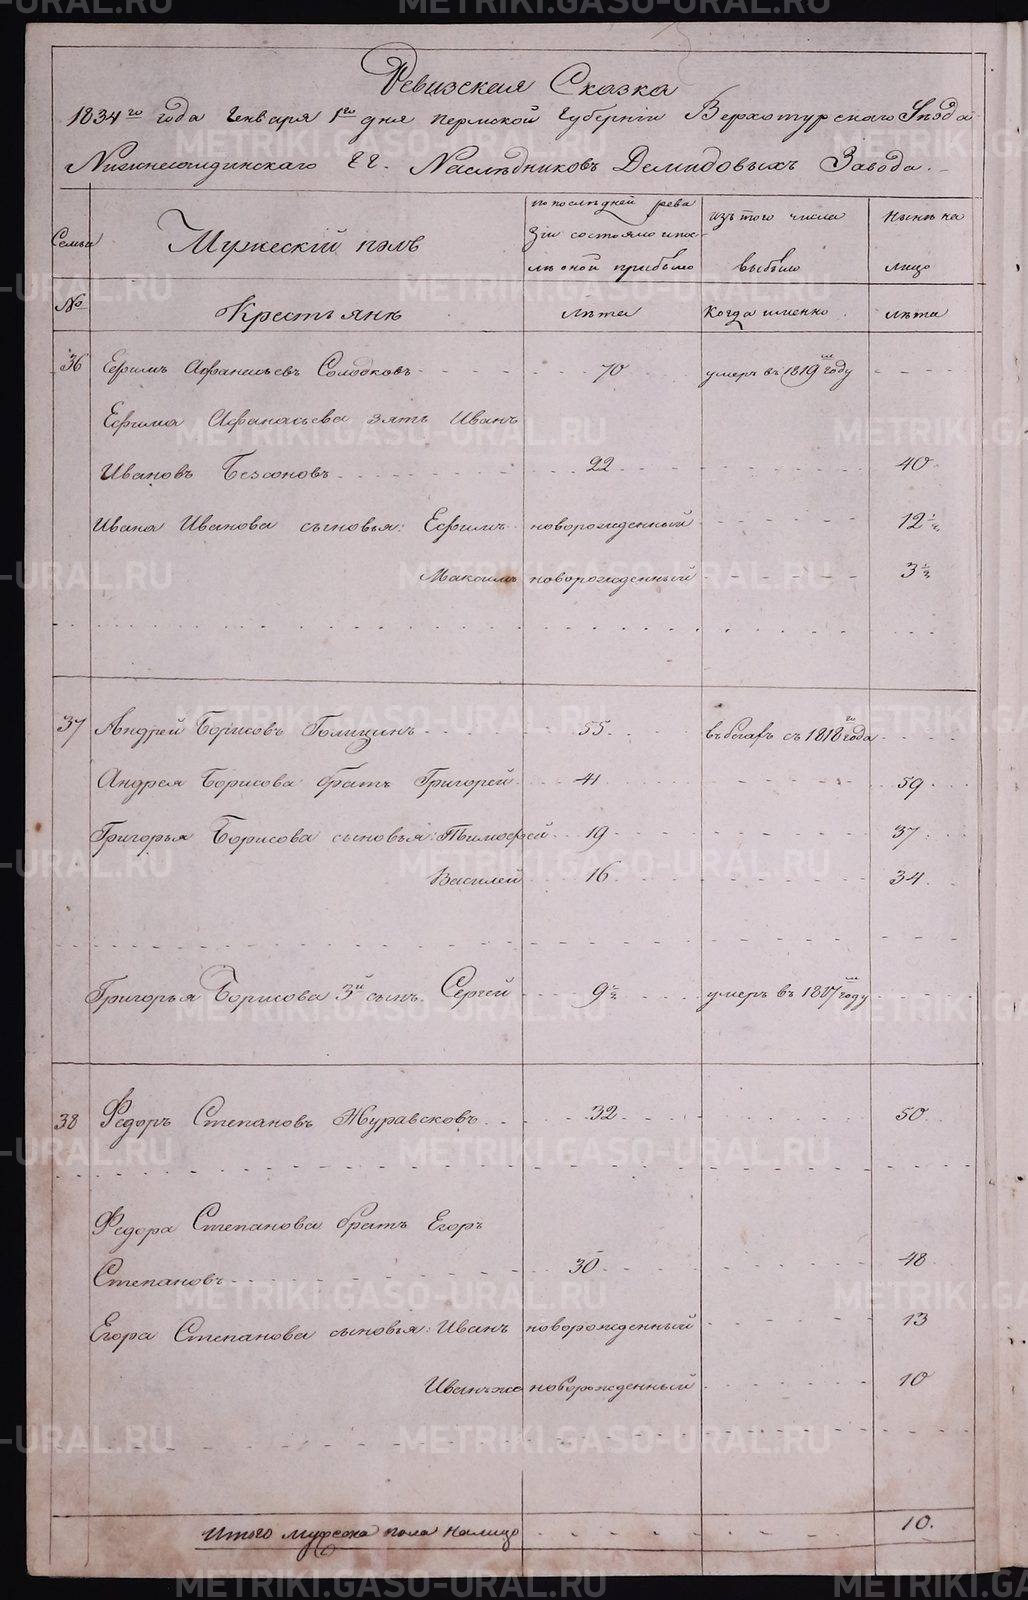 Ревизская Сказка
1834го года Генваря 1го дня Пермской Губернiи Верхотурскаго Уѣзда
Нижнесалдинскаго ГГ. Наслѣдниковъ Демидовыхъ Завода.
Семьи
Мужескiй полъ
по последней реви
зiи состояло и пос
лѣ оной прибыло
изъ того числа
выбыло
Нынѣ на
лицо
№
Крестьянѣ
Лѣта
Когда именно
Лѣта
36 Ефимъ Афанасьевъ Солодковъ 70 умеръ въ 1819м году
Ефима Афанасьева зять Иванъ
Ивановъ Безсоновъ 22 40
Ивана Иванова сыновья: Ефимъ новорожденный 12 1/2
Максимъ новорожденный 3 1/2
37 Андрей Борисовъ Голицинъ 55 въ бѣгахъ съ 1818го года
Андрея Борисова братъ Григорей 41 59
Григорья Борисова сыновья: Тимофей 19 37
Василей 16 34
Григорья Борисова 3й сынъ Сергей 9 1/2 умеръ въ 1817м году
38 Федоръ Степановъ Журавсковъ 32 50
Федора Степанова братъ Егоръ
Степановъ 30 48
Егора Степанова сыновья: Иванъ новорожденный 13
Иванъ же новорожденный 10
Итого мужеска пола налицо 10.
METRIKI.GASO-URAL.RU